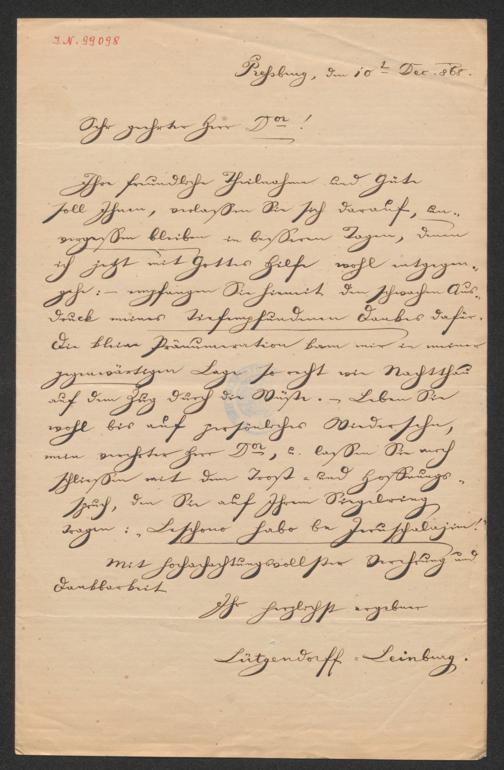 I.N. 99098
Preßburg, den 10t Dec. 868.
Sehr geehrter Herr Dor!
Ihre freundliche Theilnahme und Güte
soll Ihnen, verlassen Sie sich darauf, un-
vergessen bleiben in besseren Tagen, denen
ich jetzt mit Gottes Hilfe wohl entgegen-
gehe: – empfangen Sie hiemit den schwachen Aus-
druck meines tiefempfundenen Dankes dafür.
Die kleine Pränumeration kam mir in meiner
gegenwärtigen Lage so recht wie Nachtthau
auf dem Zug durch die Wüste. – Leben Sie
wohl bis auf persönliches Wiedersehn,
mein verehrter Herr Dor, u. lassen Sie mich
schliessen mit dem Trost- und Hoffnungs-
spruch, den Sie auf Ihrem Siegelring
tragen: „Leschono habo be Jeruschalajim!"
Mit hochachtungsvollster Verehrung und
Dankbarkeit
Ihr herzlichst ergebner
Lütgendorff-Leinburg.